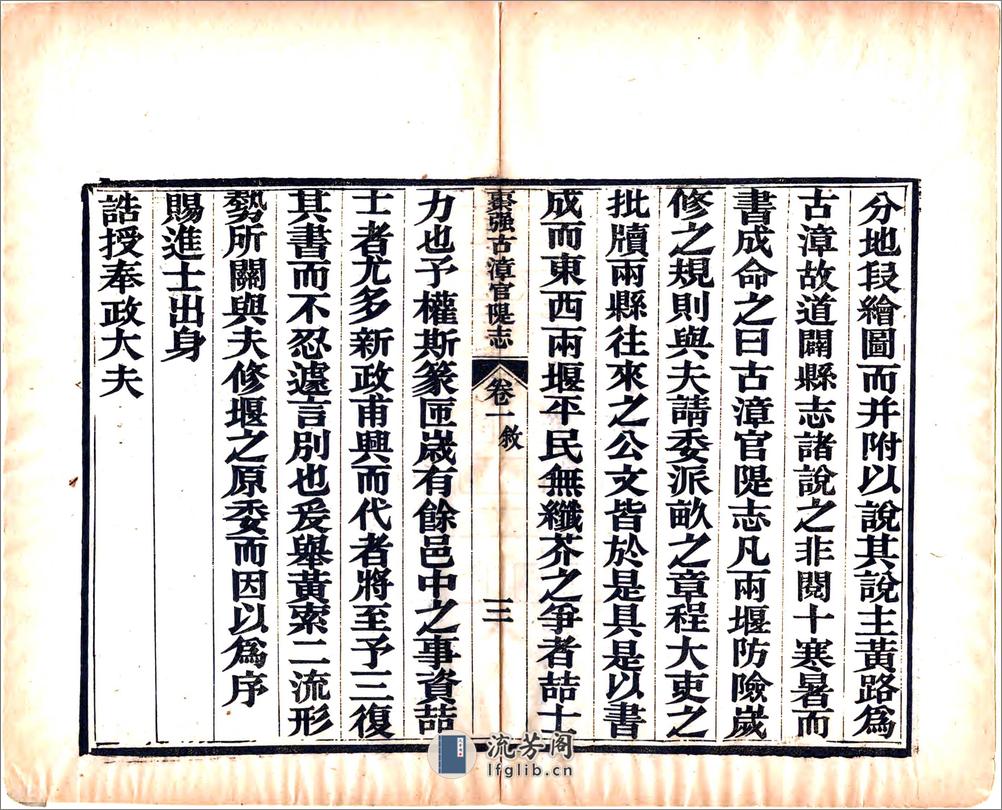 分地段繪圖而并附以說其說主黃路為
古漳故道闢縣志諸說之非閱十寒暑而
書成命之曰古漳官隄志凡兩堰防險歲
修之規則與夫請委派畝之章程大吏之
批牘兩縣往來之公文皆於是具是以書
成而東西兩堰平民無纖芥之爭者喆士
棗强古漳官隄志 卷一敘 三
力也予權斯篆匝歲有餘邑中之事資喆
士者尤多新政甫興而代者將至予三復
其書而不忍遽言別也爰舉黃索二流形
勢所關與夫修堰之原委而因以爲序
賜進士出身
誥授奉政大夫
流芳阁
lfglib.cn